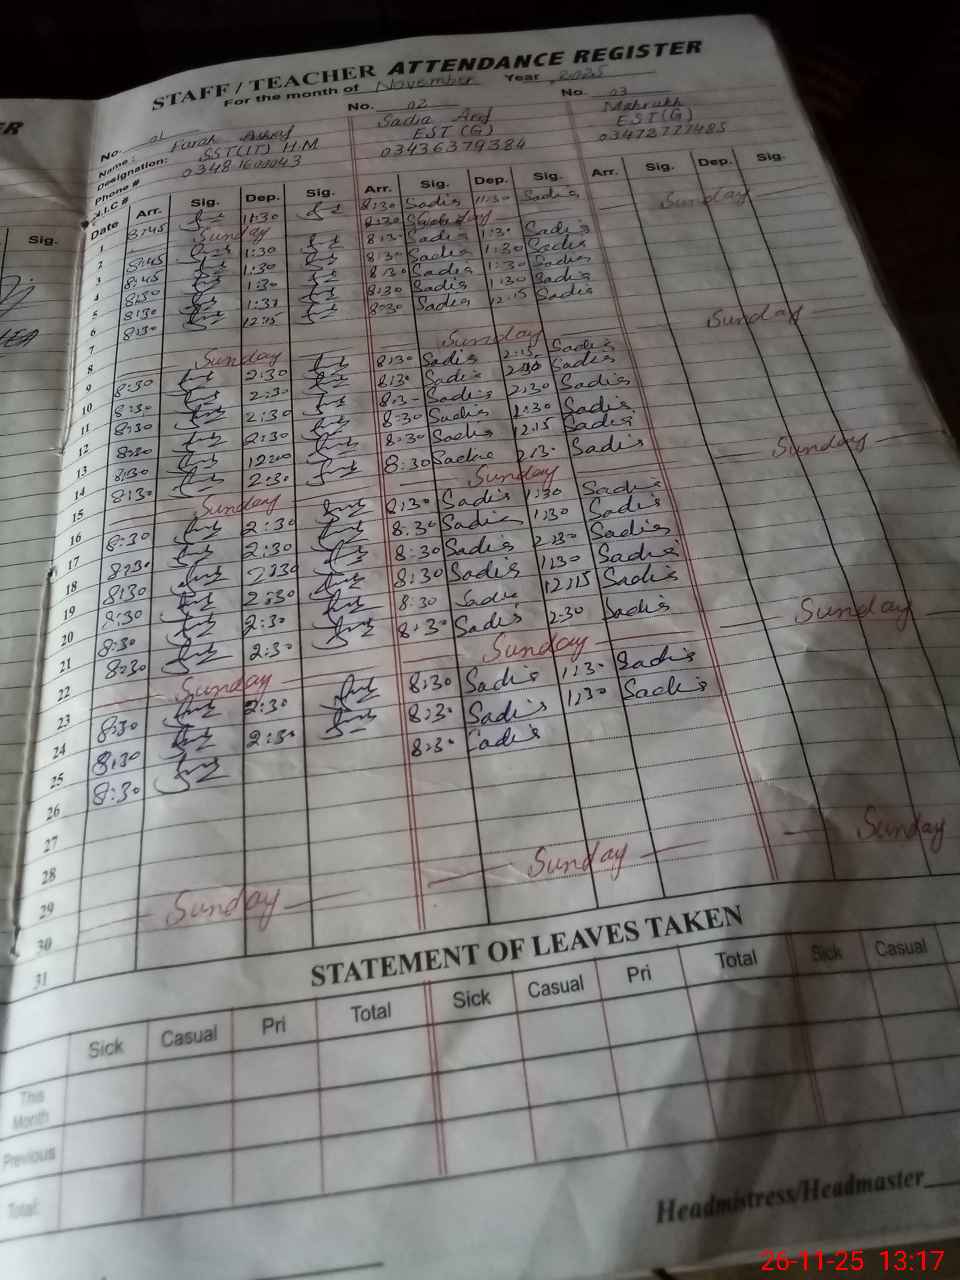 STAFF / TEACHER ATTENDANCE REGISTER
For the month of November Year 2025
No. 01 No. 02 No. 03
Name: Farah Ashraf Sadia Arif Mahrukh
Designation: SST(IT) H.M EST(G) EST(G)
Phone # 03436379384 03472777485
N.I.C #
Date Arr. Sig. Dep. Sig. Arr. Sig. Dep. Sig. Arr. Sig. Dep. Sig.
Sig.
1 8:45 11:30 8:30 Sadia 11:30 Sadia
2 Sunday Sunday Sunday
3 8:45 1:30 8:30 Sadia 1:30 Sadia
4 8:45 1:30 8:30 Sadia 1:30 Sadia
5 8:30 1:30 8:30 Sadia 1:30 Sadia
6 8:30 1:30 8:30 Sadia 1:30 Sadia
7 8:30 12:15 8:30 Sadia 12:15 Sadia
8
9 Sunday Sunday Sunday
10 8:30 2:30 8:30 Sadia 2:15 Sadia
11 8:30 2:30 8:30 Sadia 2:30 Sadia
12 8:30 2:30 8:30 Sadia 2:30 Sadia
13 8:30 2:30 8:30 Sadia 1:30 Sadia
14 8:30 12:00 8:30 Sadia 12:15 Sadia
15 8:30 2:30 8:30 Sadia 2:30 Sadia
16 Sunday Sunday Sunday
17 8:30 2:30 8:30 Sadia 1:30 Sadia
18 8:30 2:30 8:30 Sadia 1:30 Sadia
19 8:30 2:30 8:30 Sadia 2:30 Sadia
20 8:30 2:30 8:30 Sadia 1:30 Sadia
21 8:30 2:30 8:30 Sadia 12:15 Sadia
22 8:30 2:30 8:30 Sadia 2:30 Sadia
23 Sunday Sunday Sunday
24 8:30 2:30 8:30 Sadia 1:30 Sadia
25 8:30 2:30 8:30 Sadia 1:30 Sadia
26 8:30 8:30 Sadia
27
28
29
30 Sunday Sunday Sunday
31
STATEMENT OF LEAVES TAKEN
Sick Casual Pri Total Sick Casual Pri Total Sick Casual
This Month
Previous
Total:
Headmistress/Headmaster
26-11-25 13:17